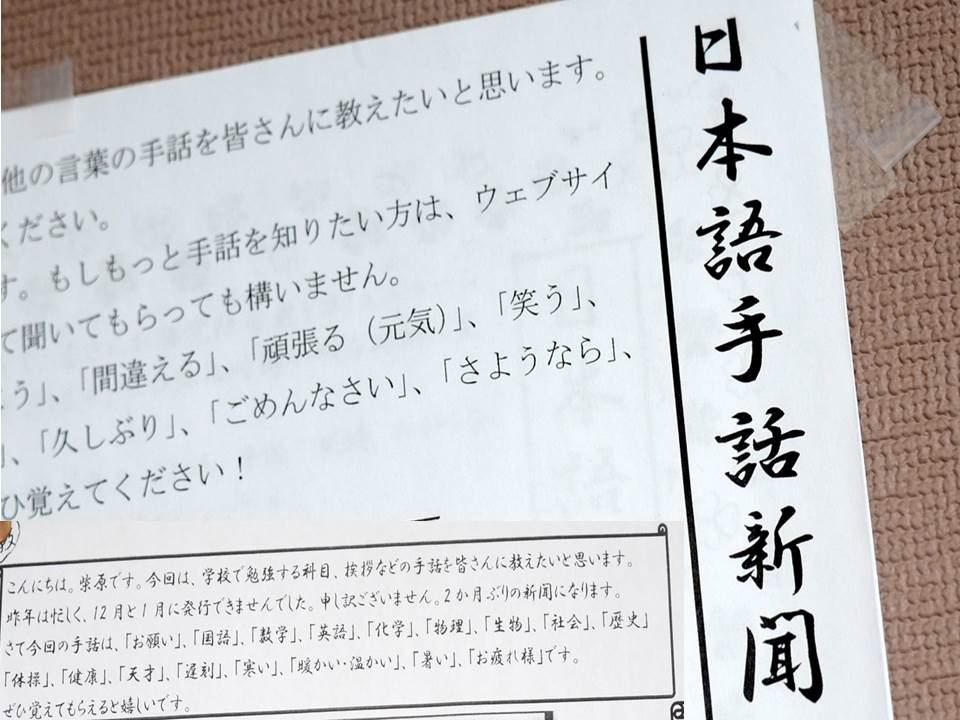 日本語手話新聞
他の言葉の手話を皆さんに教えたいと思います。
ください。
す。もしもっと手話を知りたい方は、ウェブサイ
て聞いてもらっても構いません。
う」、「間違える」、「頑張る（元気）」、「笑う」、
」、「久しぶり」、「ごめんなさい」、「さようなら」、
ひ覚えてください！
こんにちは。柴原です。今回は、学校で勉強する科目、挨拶などの手話を皆さんに教えたいと思います。
昨年は忙しく、12月と1月に発行できませんでした。申し訳ございません。2か月ぶりの新聞になります。
さて今回の手話は、「お願い」、「国語」、「数学」、「英語」、「化学」、「物理」、「生物」、「社会」、「歴史」
「体操」、「健康」、「天才」、「遅刻」、「寒い」、「暖かい・温かい」、「暑い」、「お疲れ様」です。
ぜひ覚えてもらえると嬉しいです。